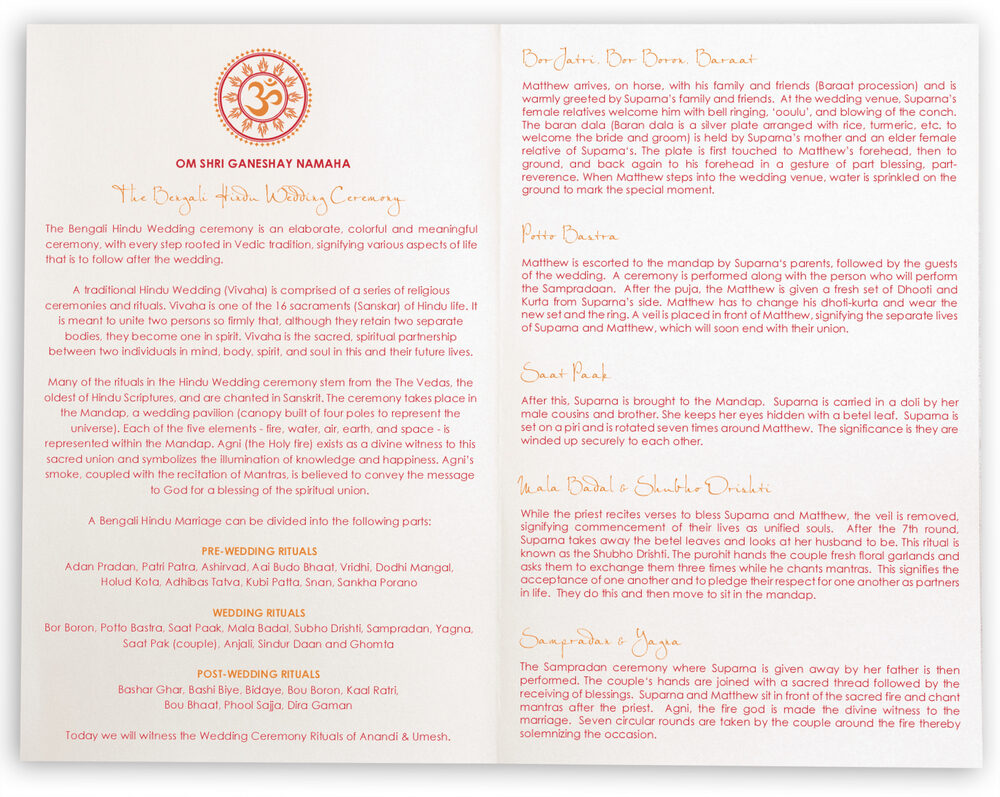 ॐ
OM SHRI GANESHAY NAMAHA
The Bengali Hindu Wedding Ceremony
The Bengali Hindu Wedding ceremony is an elaborate, colorful and meaningful
ceremony, with every step rooted in Vedic tradition, signifying various aspects of life
that is to follow after the wedding.
A traditional Hindu Wedding (Vivaha) is comprised of a series of religious
ceremonies and rituals. Vivaha is one of the 16 sacraments (Sanskar) of Hindu life. It
is meant to unite two persons so firmly that, although they retain two separate
bodies, they become one in spirit. Vivaha is the sacred, spiritual partnership
between two individuals in mind, body, spirit, and soul in this and their future lives.
Many of the rituals in the Hindu Wedding ceremony stem from the The Vedas, the
oldest of Hindu Scriptures, and are chanted in Sanskrit. The ceremony takes place in
the Mandap, a wedding pavilion (canopy built of four poles to represent the
universe). Each of the five elements - fire, water, air, earth, and space - is
represented within the Mandap. Agni (the Holy fire) exists as a divine witness to this
sacred union and symbolizes the illumination of knowledge and happiness. Agni's
smoke, coupled with the recitation of Mantras, is believed to convey the message
to God for a blessing of the spiritual union.
A Bengali Hindu Marriage can be divided into the following parts:
PRE-WEDDING RITUALS
Adan Pradan, Patri Patra, Ashirvad, Aai Budo Bhaat, Vridhi, Dodhi Mangal,
Holud Kota, Adhibas Tatva, Kubi Patta, Snan, Sankha Porano
WEDDING RITUALS
Bor Boron, Potto Bastra, Saat Paak, Mala Badal, Subho Drishti, Sampradan, Yagna,
Saat Pak (couple), Anjali, Sindur Daan and Ghomta
POST-WEDDING RITUALS
Bashar Ghar, Bashi Biye, Bidaye, Bou Boron, Kaal Ratri,
Bou Bhaat, Phool Sajja, Dira Gaman
Today we will witness the Wedding Ceremony Rituals of Anandi & Umesh.
Bor Jatri, Bor Boron, Baraat
Matthew arrives, on horse, with his family and friends (Baraat procession) and is
warmly greeted by Suparna's family and friends. At the wedding venue, Suparna's
female relatives welcome him with bell ringing, 'ooulu', and blowing of the conch.
The baran dala (Baran dala is a silver plate arranged with rice, turmeric, etc. to
welcome the bride and groom) is held by Suparna's mother and an elder female
relative of Suparna's. The plate is first touched to Matthew's forehead, then to
ground, and back again to his forehead in a gesture of part blessing, part-
reverence. When Matthew steps into the wedding venue, water is sprinkled on the
ground to mark the special moment.
Potto Bastra
Matthew is escorted to the mandap by Suparna's parents, followed by the guests
of the wedding. A ceremony is performed along with the person who will perform
the Sampradaan. After the puja, the Matthew is given a fresh set of Dhooti and
Kurta from Suparna's side. Matthew has to change his dhoti-kurta and wear the
new set and the ring. A veil is placed in front of Matthew, signifying the separate lives
of Suparna and Matthew, which will soon end with their union.
Saat Paak
After this, Suparna is brought to the Mandap. Suparna is carried in a doli by her
male cousins and brother. She keeps her eyes hidden with a betel leaf. Suparna is
set on a piri and is rotated seven times around Matthew. The significance is they are
winded up securely to each other.
Mala Badal & Shubho Drishti
While the priest recites verses to bless Suparna and Matthew, the veil is removed,
signifying commencement of their lives as unified souls. After the 7th round,
Suparna takes away the betel leaves and looks at her husband to be. This ritual is
known as the Shubho Drishti. The purohit hands the couple fresh floral garlands and
asks them to exchange them three times while he chants mantras. This signifies the
acceptance of one another and to pledge their respect for one another as partners
in life. They do this and then move to sit in the mandap.
Sampradan & Yagna
The Sampradan ceremony where Suparna is given away by her father is then
performed. The couple's hands are joined with a sacred thread followed by the
receiving of blessings. Suparna and Matthew sit in front of the sacred fire and chant
mantras after the priest. Agni, the fire god is made the divine witness to the
marriage. Seven circular rounds are taken by the couple around the fire thereby
solemnizing the occasion.